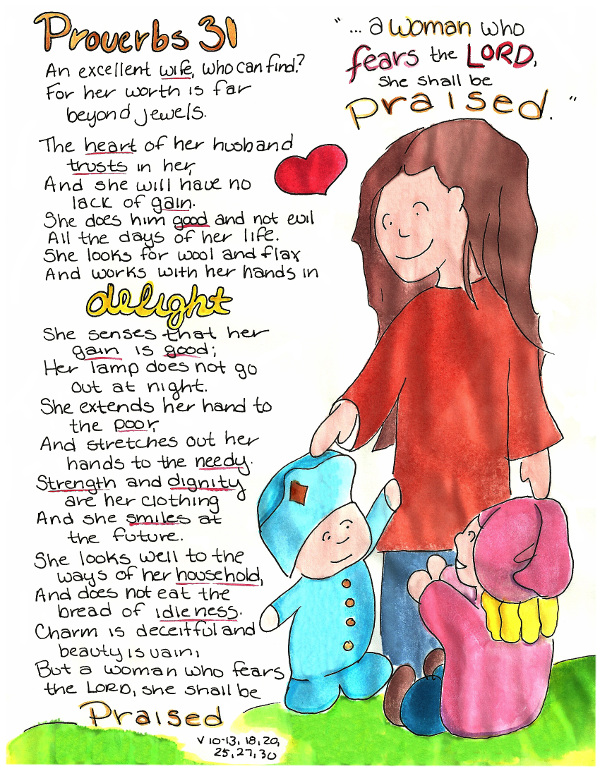 Proverbs 31
An excellent wife, who can find?
For her worth is far
beyond jewels.
The heart of her husband
trusts in her,
And she will have no
lack of gain.
She does him good and not evil
All the days of her life.
She looks for wool and flax
And works with her hands in
delight
She senses that her
gain is good;
Her lamp does not go
out at night.
She extends her hand to
the poor,
And stretches out her
hands to the needy.
Strength and dignity
are her clothing
And she smiles at
the future.
She looks well to the
ways of her household,
And does not eat the
bread of idleness.
Charm is deceitful and
beauty is vain;
But a woman who fears
the LORD, she shall be
Praised
v 10-13, 18, 20,
25, 27, 30
"... a woman who
fears the LORD,
she shall be
praised."